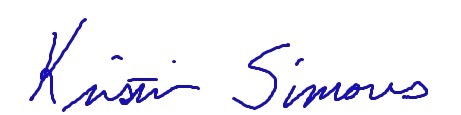 Kristin Simons